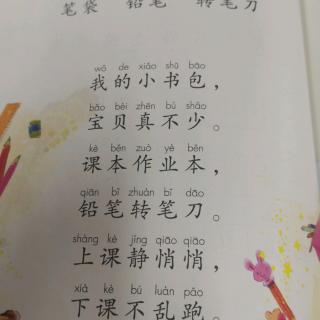 笔袋 铅笔 转笔刀
wǒ de xiǎo shū bāo
我的小书包，
bǎo bèi zhēn bù shǎo
宝贝真不少。
kè běn zuò yè běn
课本作业本，
qiān bǐ zhuàn bǐ dāo
铅笔转笔刀。
shàng kè jìng qiāo qiāo
上课静悄悄，
xià kè bú luàn pǎo
下课不乱跑。